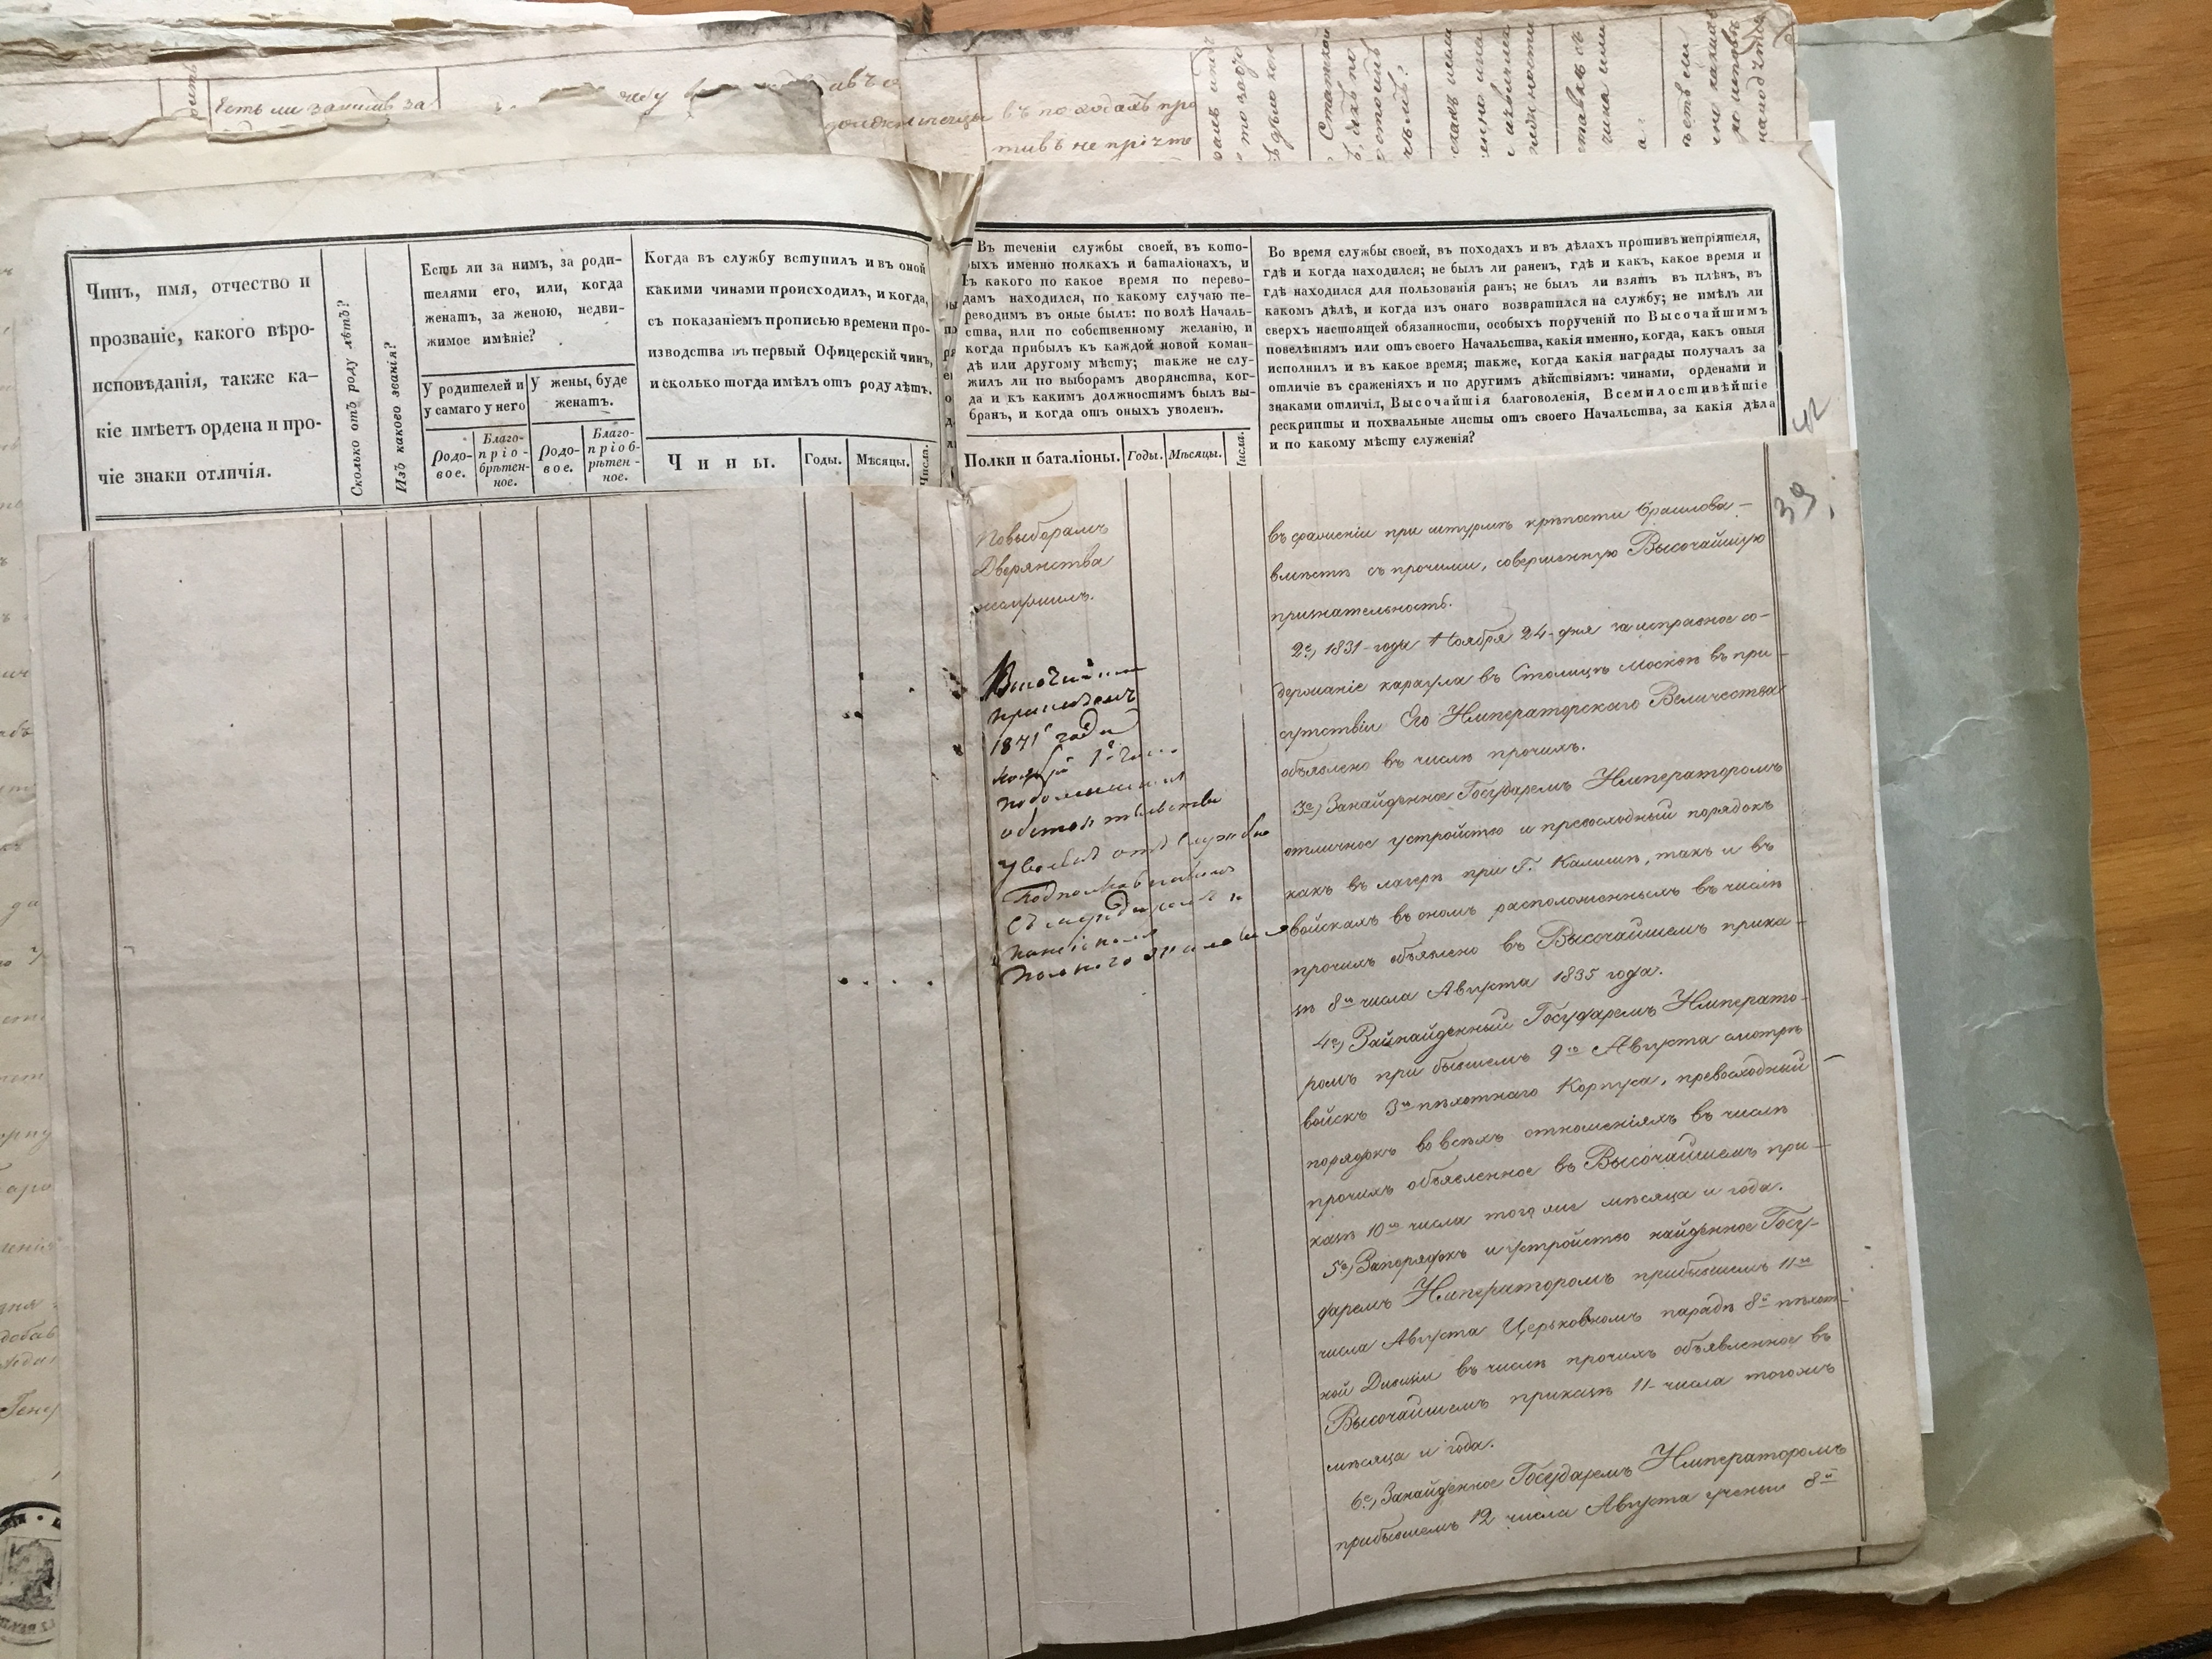 Есть ли за нимъ за
въ походахъ про
тивъ непріяте
Чинъ, имя, отчество и
прозваніе, какого вѣро-
исповѣданія, также ка-
кіе имѣетъ ордена и про-
чіе знаки отличія.
Сколько отъ роду лѣтъ?
Изъ какого званія?
Есть ли за нимъ, за роди-
телями его, или, когда
женатъ, за женою, недви-
жимое имѣніе?
У родителей и
у самаго у него
У жены, буде
женатъ.
Родо-
вое.
Благо-
пріо-
брѣтен-
ное.
Родо-
вое.
Благо-
пріоб-
рѣтен-
ное.
Когда въ службу вступилъ и въ оной
какими чинами происходилъ, и когда,
съ показаніемъ прописью времени про-
изводства въ первый Офицерскій чинъ,
и сколько тогда имѣлъ отъ роду лѣтъ.
Чины.
Годы.
Мѣсяцы.
Числа.
Въ теченіи службы своей, въ кото-
рыхъ именно полкахъ и баталіонахъ, и
съ какого по какое время по перево-
дамъ находился, по какому случаю пе-
реводимъ въ оные былъ: по волѣ Началь-
ства, или по собственному желанію, и
когда прибылъ къ каждой новой коман-
дѣ или другому мѣсту; также не слу-
жилъ ли по выборамъ дворянства, ког-
да и къ какимъ должностямъ былъ вы-
бранъ, и когда отъ оныхъ уволенъ.
Полки и баталіоны.
Годы.
Мѣсяцы.
Числа.
Во время службы своей, въ походахъ и въ дѣлахъ противъ непріятеля,
гдѣ и когда находился; не былъ ли раненъ, гдѣ и какъ, какое время и
гдѣ находился для пользованія ранъ; не былъ ли взятъ въ плѣнъ, въ
какомъ дѣлѣ, и когда изъ онаго возвратился на службу; не имѣлъ ли
сверхъ настоящей обязанности, особыхъ порученій по Высочайшимъ
повелѣніямъ или отъ своего Начальства, какія именно, когда, какъ оныя
исполнилъ и въ какое время; также, когда какія награды получалъ за
отличіе въ сраженіяхъ и по другимъ дѣйствіямъ: чинами, орденами и
знаками отличія, Высочайшія благоволенія, Всемилостивѣйшіе
рескрипты и похвальные листы отъ своего Начальства, за какія дѣла
и по какому мѣсту служенія?
42
39
По выборамъ
Дворянства
не служилъ.
Высочайшимъ
приказомъ
1841 года
Ноября 1 числа
по домашнимъ
обстоятельствамъ
уволенъ отъ службы
Подполковникомъ
съ мундиромъ и
пенсіономъ
полнаго жалованья
въ сраженіи при штурмѣ крѣпости Браилова –
вмѣстѣ съ прочими, совершенную Высочайшую
признательность.
2е, 1831 года Ноября 24 дня за исправное со-
держаніе караула въ Столицѣ Москвѣ въ при-
сутствіи Его Императорскаго Величества
объявлено въ числѣ прочихъ.
3е, За найденное Государемъ Императоромъ
отличное устройство и превосходный порядокъ
какъ въ лагерѣ при Г. Калишѣ, такъ и въ
войскахъ въ ономъ расположенныхъ въ числѣ
прочихъ объявлено въ Высочайшемъ прика-
зѣ 8го числа Августа 1835 года.
4е, За найденный Государемъ Императо-
ромъ при бывшемъ 9го Августа смотрѣ
войскъ 3го пѣхотнаго Корпуса, превосходный
порядокъ во всѣхъ отношеніяхъ въ числѣ
прочихъ объявленное въ Высочайшемъ при-
казѣ 10го числа того же мѣсяца и года.
5е, За порядокъ и устройство найденное Госу-
даремъ Императоромъ при бывшемъ 11го
числа Августа Церьковномъ парадѣ 8й пѣхот-
ной Дивизіи въ числѣ прочихъ объявленное въ
Высочайшемъ приказѣ 11 числа тогожъ
мѣсяца и года.
6е, За найденное Государемъ Императоромъ
при бывшемъ 12 числа Августа ученьи 8й